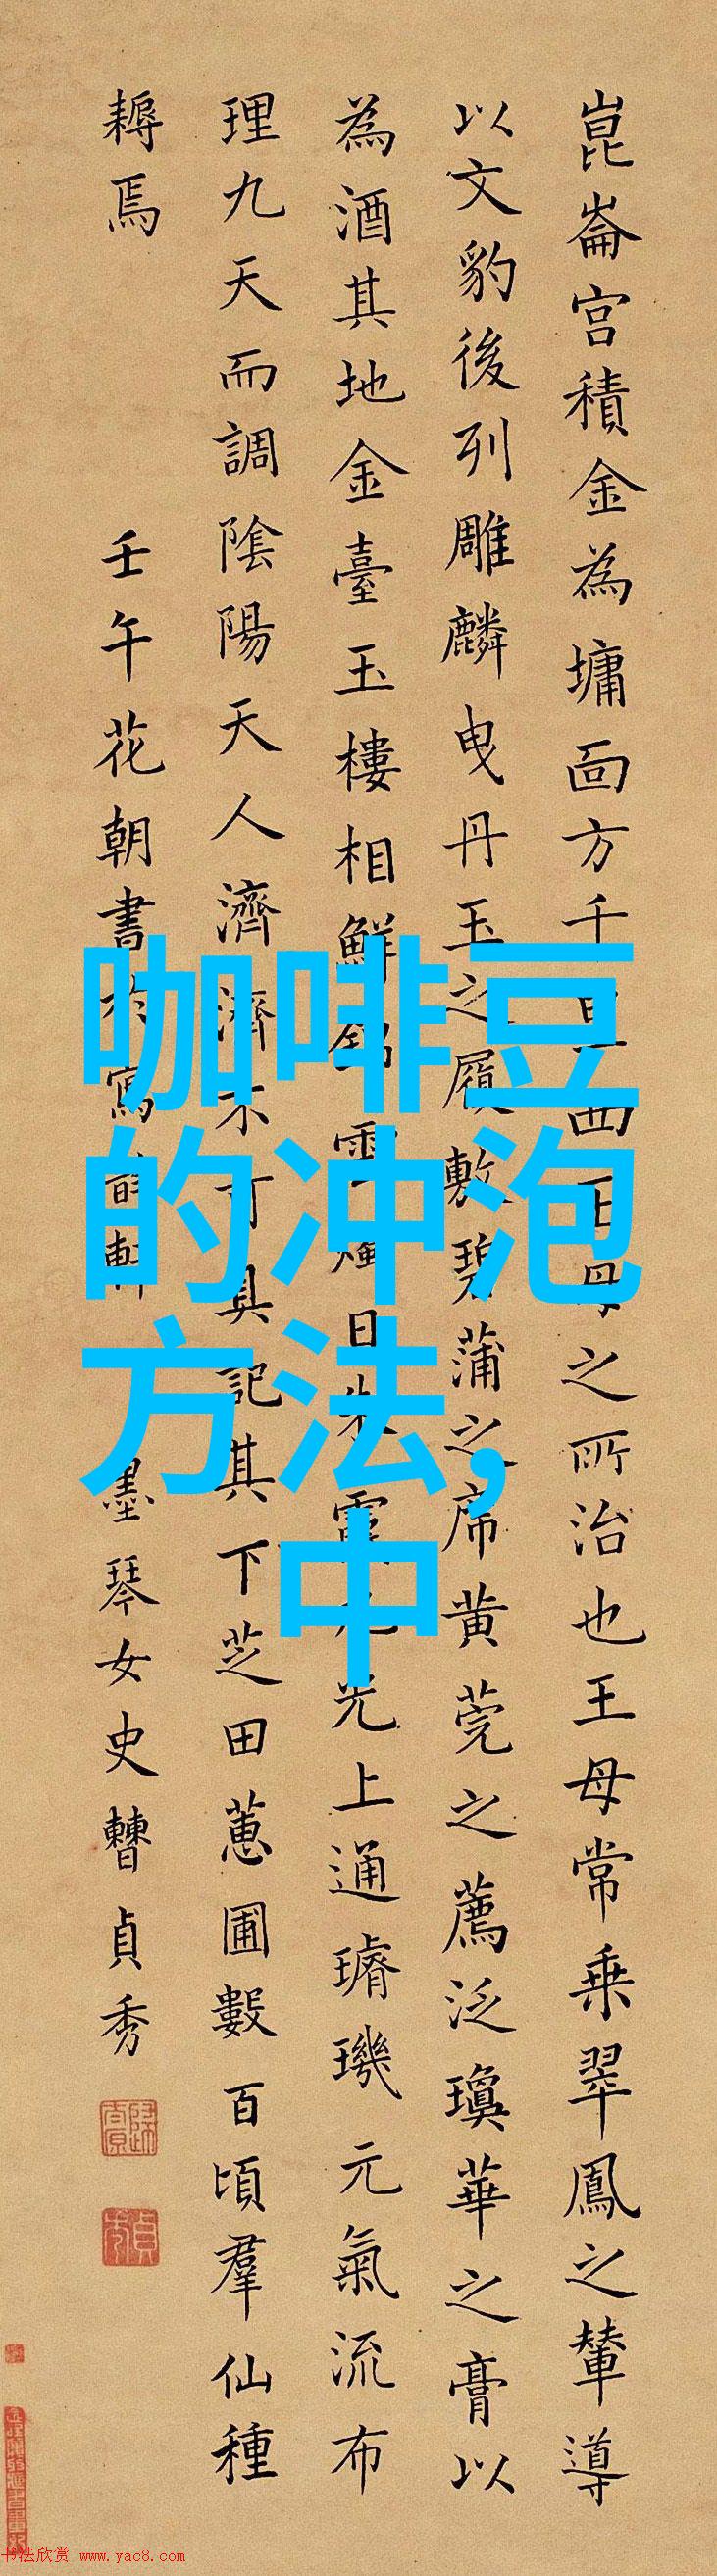 崑崙宫積金為墉面方千里西王母之所治也王母常乗翠鳳之輦導
以文豹後列雕麟曳丹玉之履敷碧蒲之席黄莞之薦泛瓊華之膏以
為酒其地金臺玉樓相鮮
日朱霞九光上通璿璣元氣流布
理九天而調陰陽天人濟濟不可具記其下芝田蕙圃數百頃羣仙種
耨焉
壬午花朝書於寫韻軒 墨琴女史曹貞秀
咖啡豆
的冲泡
方法,
中
书法欣赏 www.yac8.com